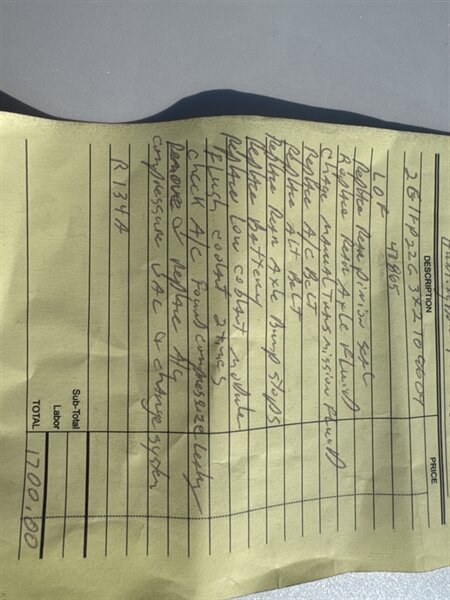 DESCRIPTION PRICE
LOF
Replace Rear pinion seal
Replace Rear Axle Fluid
Manual Transmission Fluid
Replace A/C Belt
Replace Alt Belt
Replace Rear Axle Bump Stops
Replace Battery
Replace Low coolant module
Flush coolant 2 times
check A/C Found compressor
Remove & Replace A/C
compressor & system
R134A
Sub-Total
Labor
TOTAL 1700.00